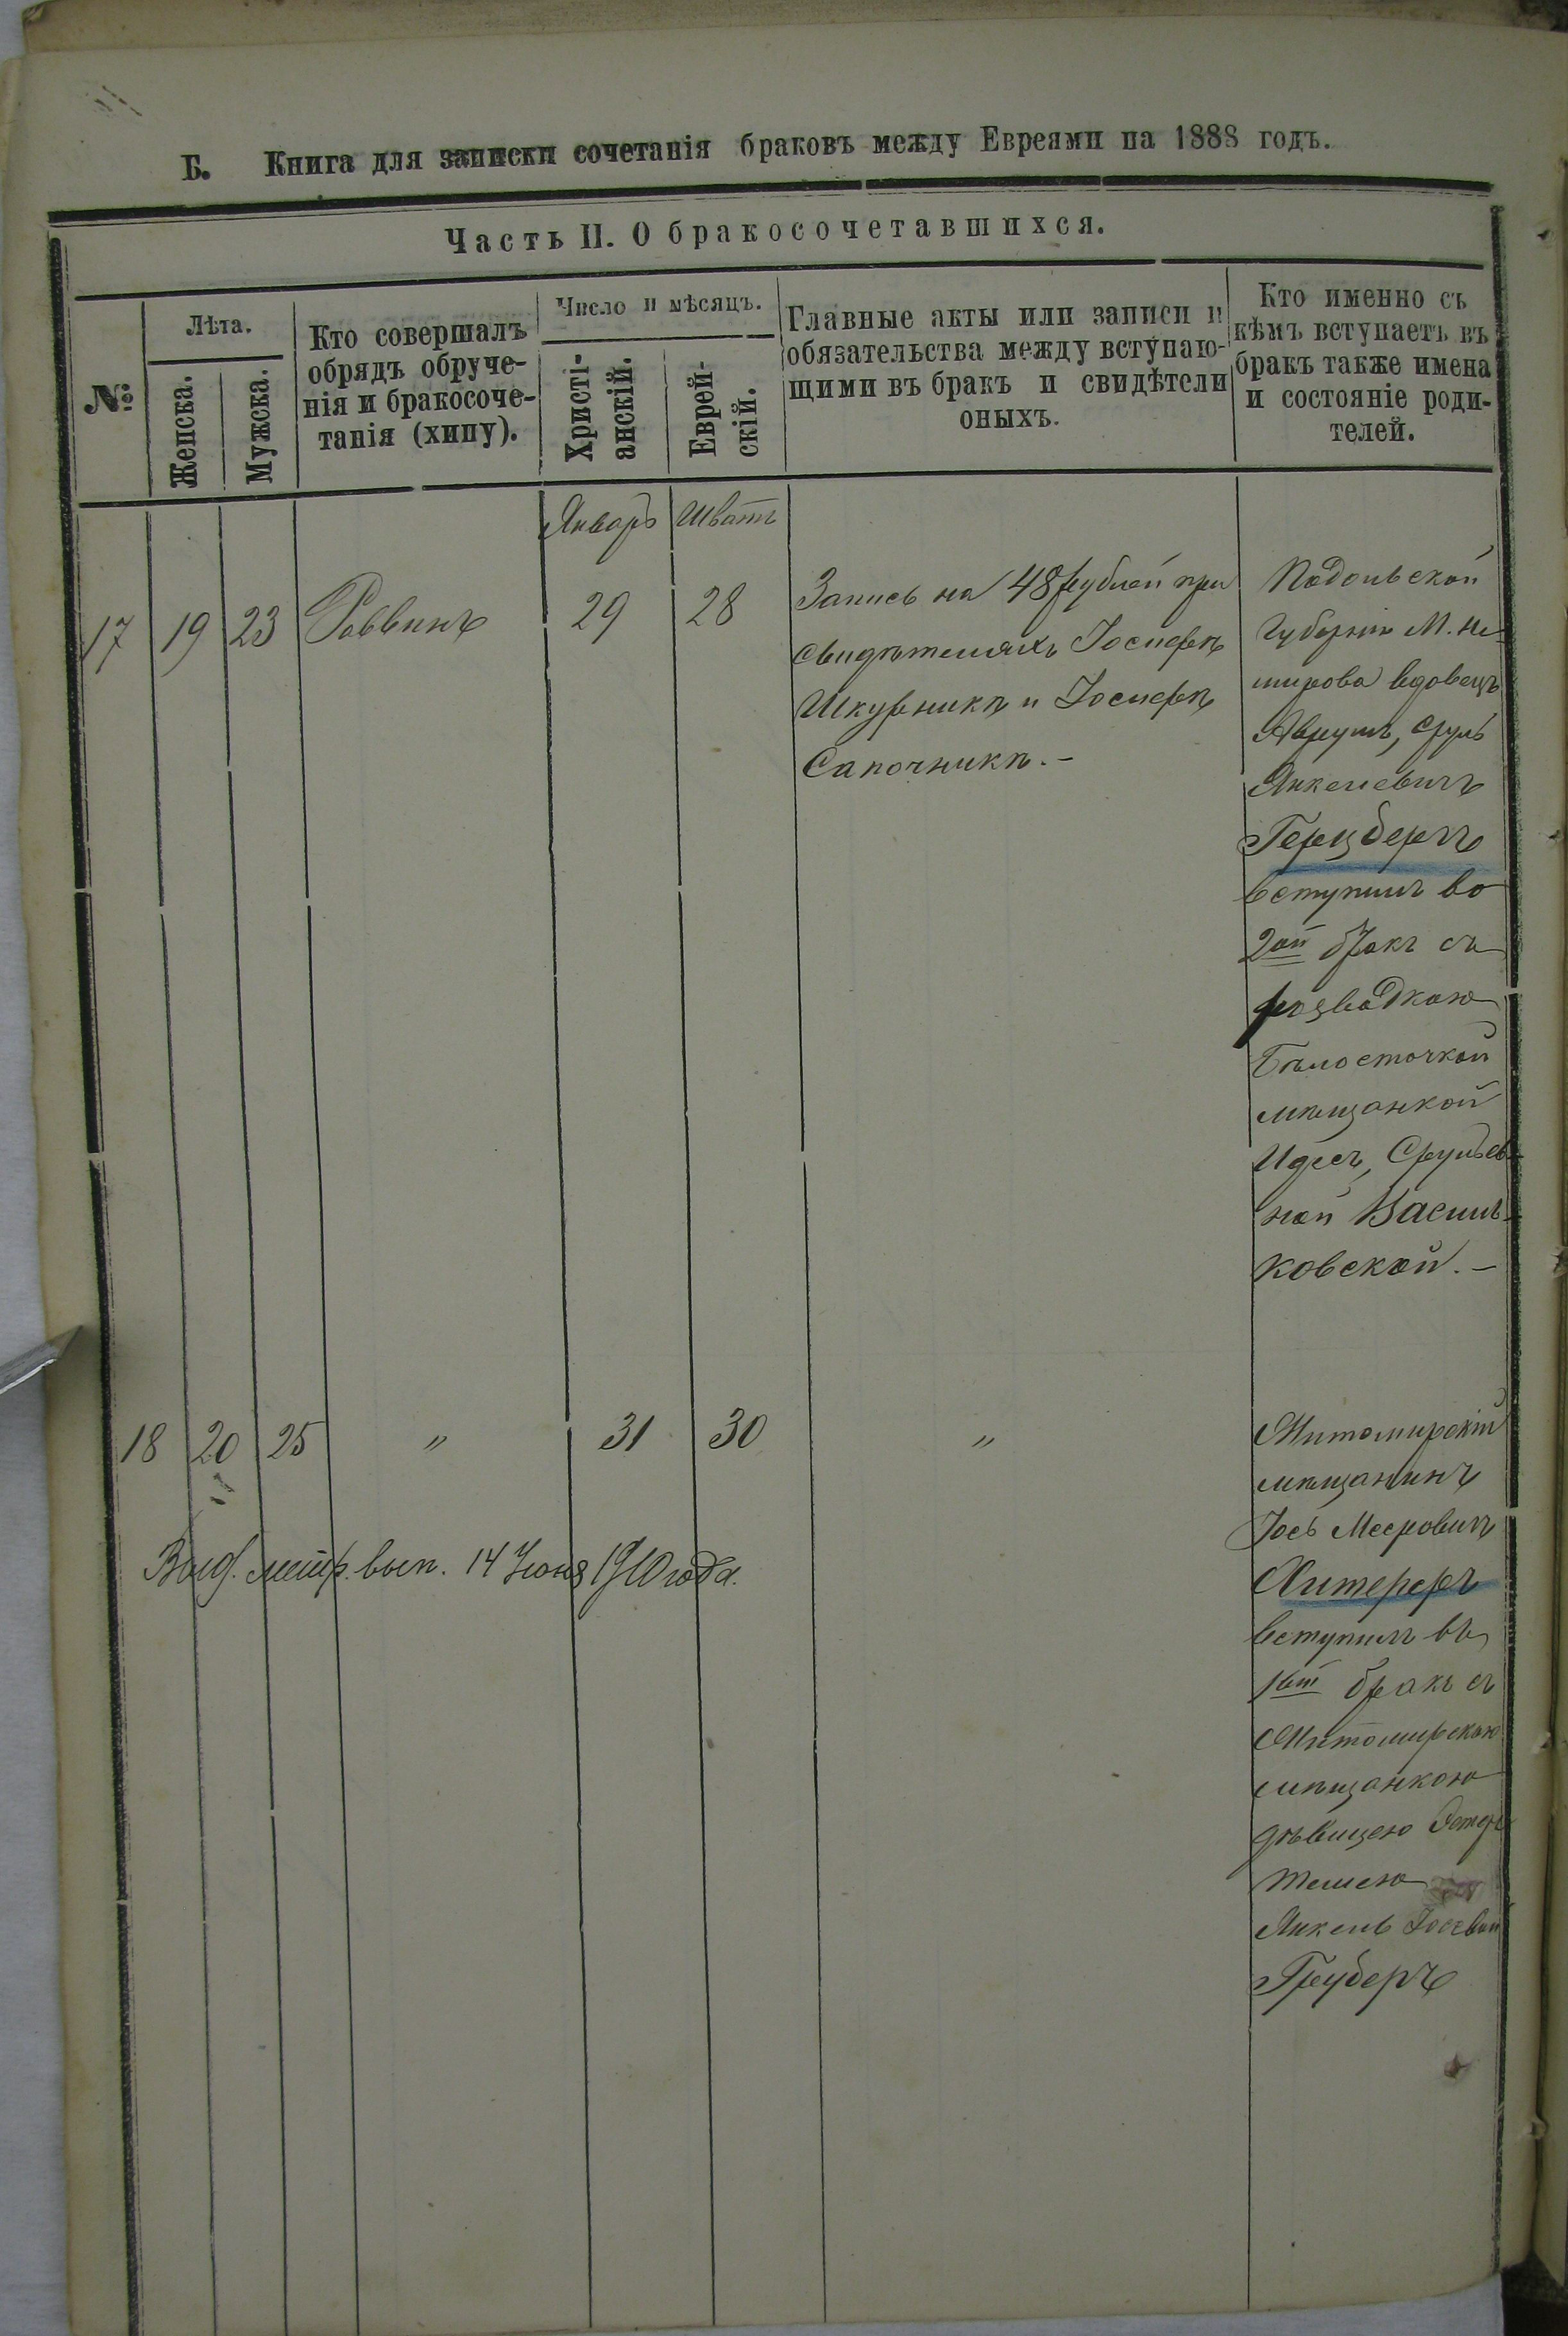 Б. Книга для записки сочетанія браковъ между Евреями на 1888 годъ.
Часть II. О бракосочетавшихся.
№
Лѣта.
Женска.
Мужска.
Кто совершалъ
обрядъ обруче-
нія и бракосоче-
танія (хипу).
Число и мѣсяцъ.
Христі-
анскій.
Еврей-
скій.
Главные акты или записи и
обязательства между вступаю-
щими въ бракъ и свидѣтели
оныхъ.
Кто именно съ
кѣмъ вступаетъ въ
бракъ также имена
и состояніе роди-
телей.
Январь Шватъ
17 19 23 Раввинъ 29 28
Запись на 48 рублей при
свидѣтеляхъ Іосифѣ
Шкурникѣ и Іосифѣ
Сапочникѣ.-
Подольской
Губерніи М. Не-
мирова вдовецъ
Аврумъ, Сруль
Янкелевичъ
Герцбергъ
вступилъ во
2ой бракъ съ
разводкою
Бѣлосточкой
мѣщанкой
Идесъ, Срульев-
ной Василь-
ковской.-
18 20 25 " 31 30 "
Житомирскій
мѣщанинъ
Іось Мееровичъ
Хитереръ
вступилъ въ
1ый бракъ съ
Житомирскою
мѣщанкою
дѣвицею
Янкель Іосевой
Груберъ
Выд. метр. вып. 14 Іюня 1910 года.